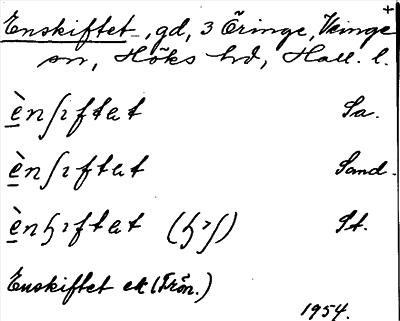 +
Enskiftet, gd, 3 Öringe, Veinge
sn, Höks hd, Hall. l.
ènʃıftat Sa.
ènʃıftat Sand.
ènɧıftat (ɧ˃ʃ) St.
Enskiftet ek (Frön.)
1954.